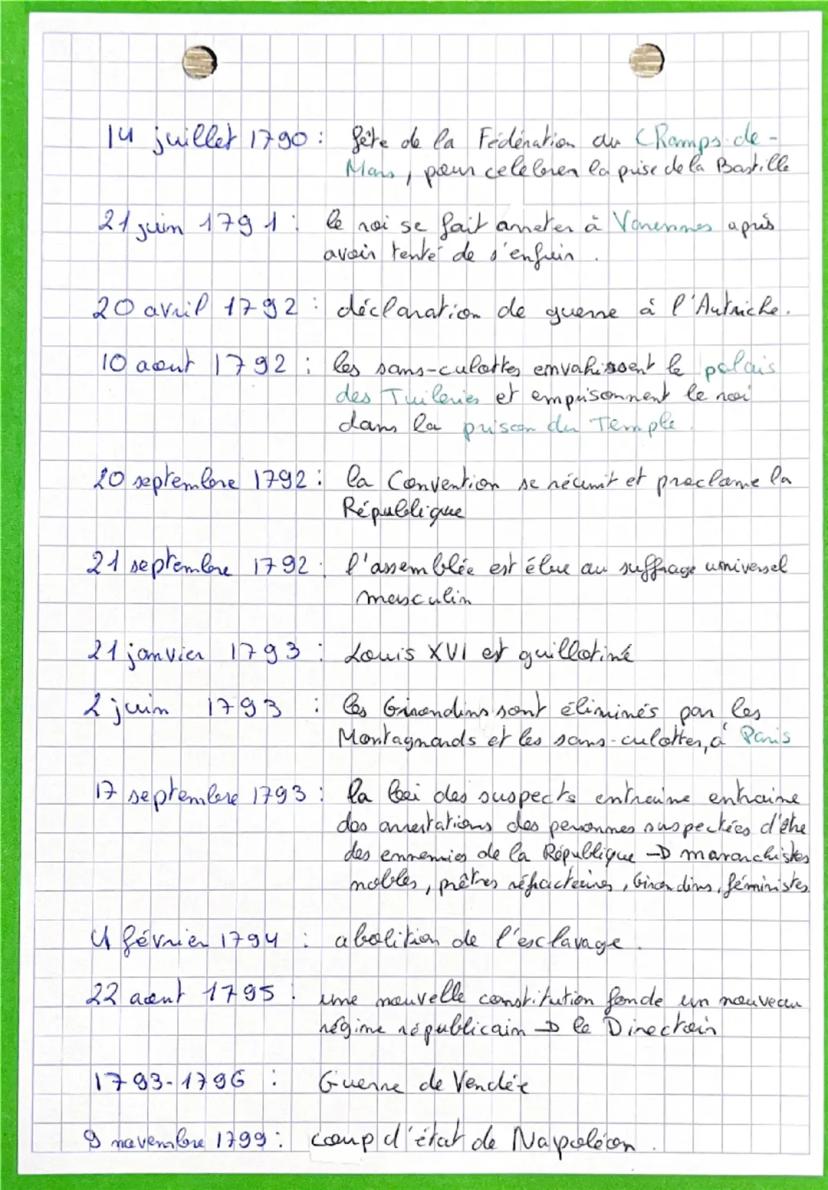 14 juillet 1790 : fête de la Fédération du Champs-de-
Mars, pour celebrer la prise de la Bastille
21 juin 1791 : le roi se fait arreter à Varennes après
avoir tenté de s'enfuir.
20 avril 1792 : déclaration de guerre à l'Autriche.
10 aout 1792 : les sans-culottes envahissent le palais
des Tuileries et emprisonnent le roi
dans la prison du Temple.
20 septembre 1792 : la Convention se réunit et proclame la
République
21 septembre 1792 : l'assemblée est élue au suffrage universel
masculin
21 janvier 1793 : Louis XVI est guillotiné
2 juin 1793 : les Girondins sont éliminés par les
Montagnards et les sans-culottes, à Paris
17 septembre 1793 : la loi des suspects entraine entraine
des arrestations des personnes suspectées d'être
des ennemies de la République → monarchistes
nobles, prêtres réfractaires, Girondins, féministes
4 février 1794 : abolition de l'esclavage.
22 aout 1795 : une nouvelle constitution fonde un nouveau
régime républicain → le Directoir
1793-1796 : Guerre de Vendée
9 novembre 1799 : coup d'état de Napoléon.